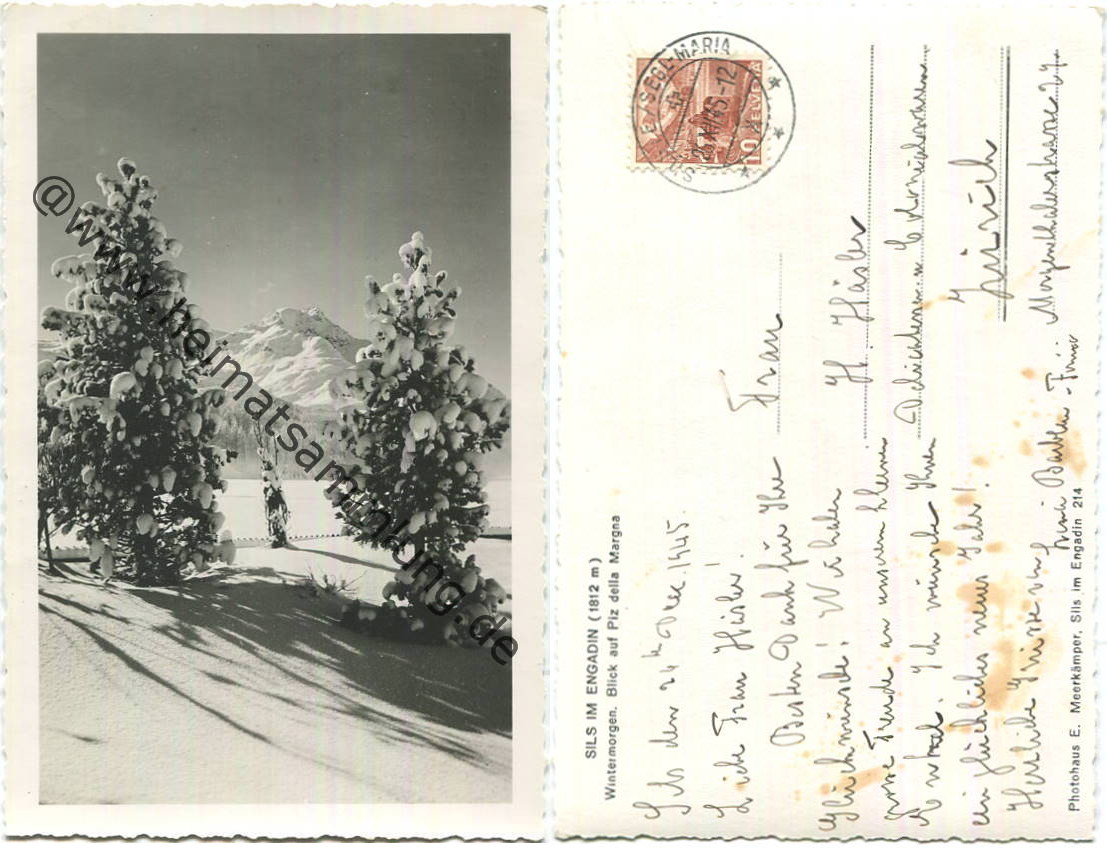 @www.heimatsammlung.de
SILS IM ENGADIN (1812 m)
Wintermorgen. Blick auf Piz della Margna
Sils den 24. Dez. 1945.
Liebe Frau Häsler!
Besten Dank für Ihre
Glückwünsche! Wir haben
grosse Freude an unserem kleinen
Ich wünsche Ihnen
ein glückliches neues Jahr!
Herzliche Grüsse
Photohaus E. Meerkämper, Sils im Engadin 214
SEGL-MARIA
XII 45-12
HELVETIA
10
Frau
H. Häsler
Zürich